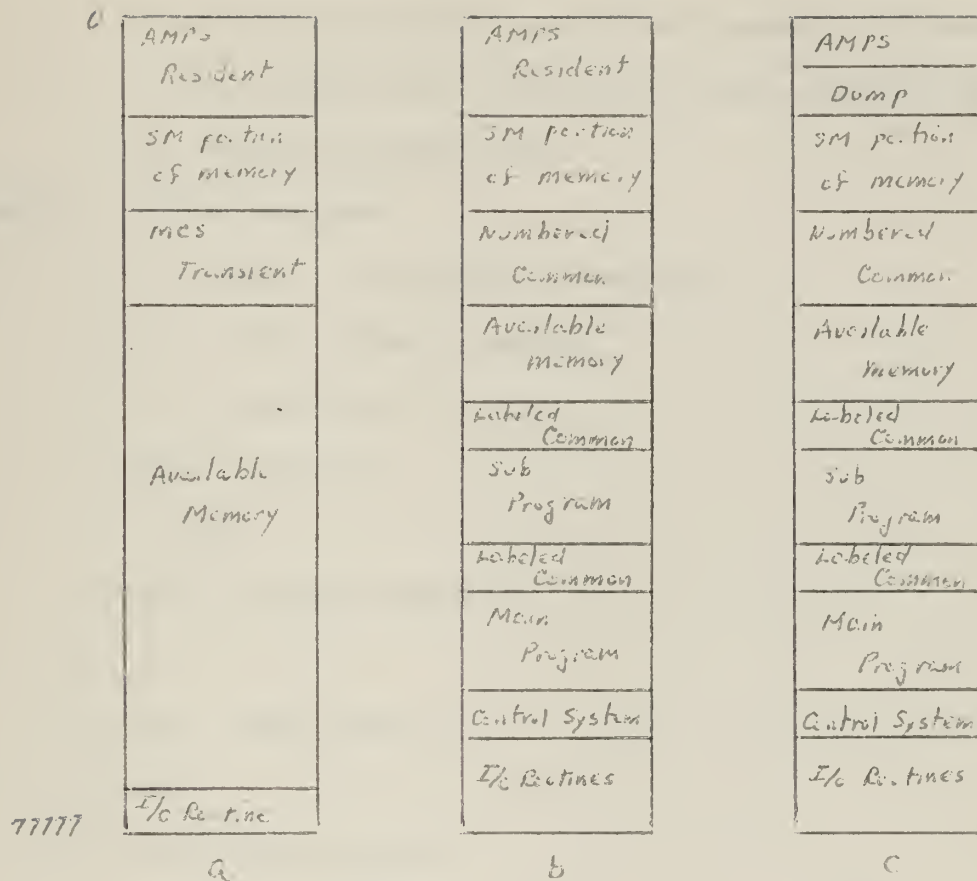 0
AMPS
Resident
SM portion
of memory
MCS
Transient
Available
Memory
I/O Routine
77777
a
AMPS
Resident
SM portion
of memory
Numbered
Common
Available
Memory
Labeled
Common
Sub
Program
Labeled
Common
Main
Program
Control System
I/O Routines
b
AMPS
Dump
SM portion
of memory
Numbered
Common
Available
Memory
Labeled
Common
Sub
Program
Labeled
Common
Main
Program
Control System
I/O Routines
C